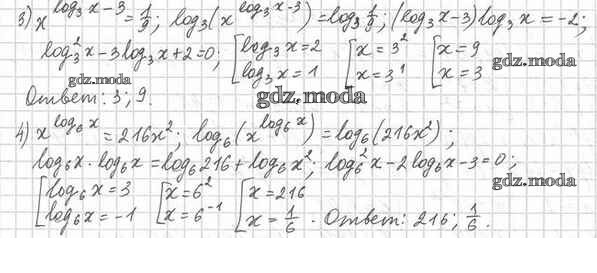 3) x^(log₃x-3) = 1/9; log₃(x^(log₃x-3)) = log₃ 1/9; (log₃x-3)log₃x = -2;
log₃²x-3log₃x+2=0; [log₃x=2 [x=3² [x=9
log₃x=1 x=3¹ x=3
gdz.moda
gdz.moda
Ответ: 3; 9.
gdz.moda
4) x^(log₆x) = 216x²; log₆(x^(log₆x)) = log₆(216x²);
log₆x · log₆x = log₆216 + log₆x²; log₆²x-2log₆x-3=0;
gdz.moda
[log₆x=3 [x=6² [x=216
log₆x=-1 x=6⁻¹ x=1/6. Ответ: 216; 1/6.